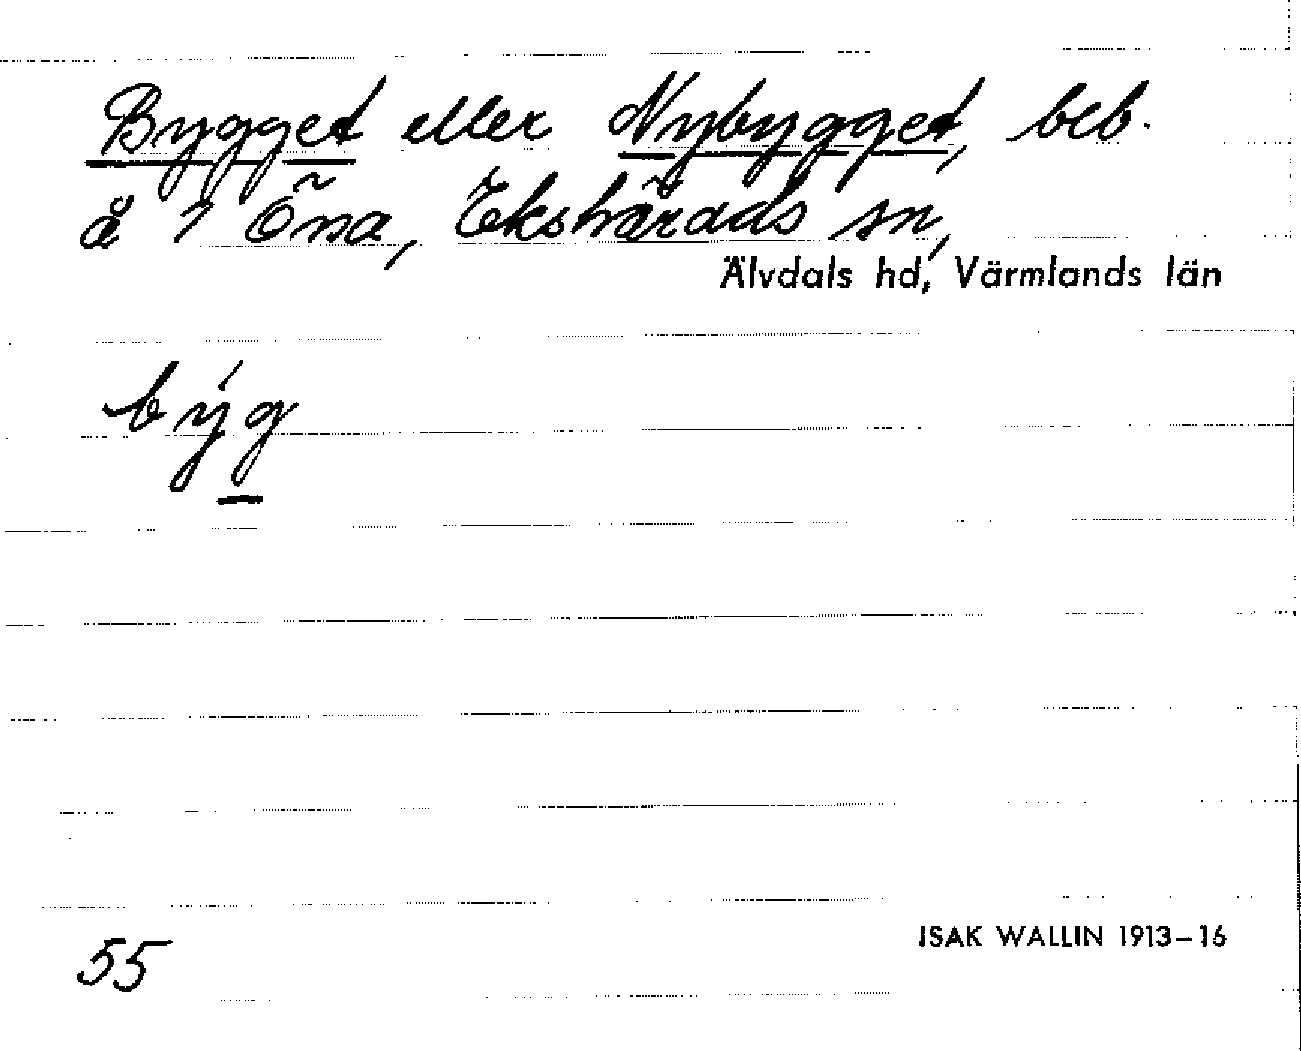 Bygget eller Nybygget, beb.
å 1 Öna, Ekshärads sn,
Älvdals hd, Värmlands län
býg
55
ISAK WALLIN 1913–16